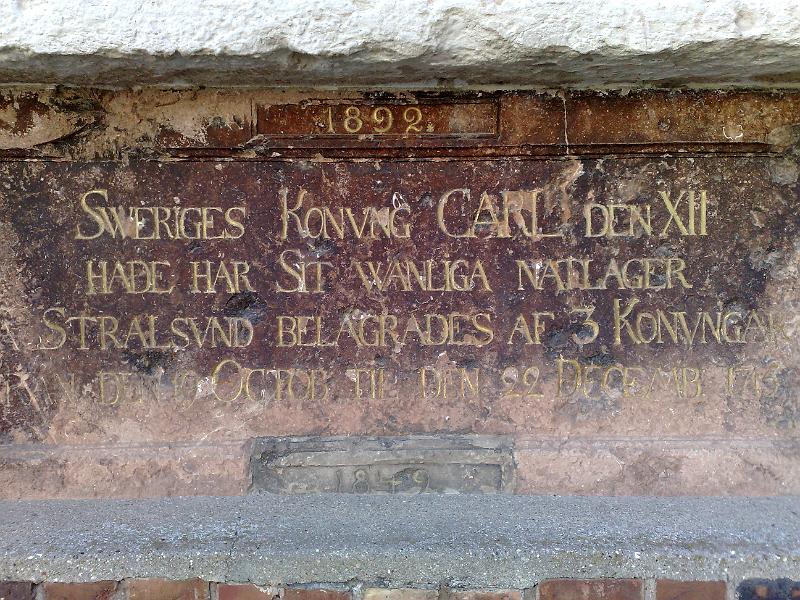 1892.
SWERIGES KONVNG CARL DEN XII
HADE HÄR SIT WANLIGA NATLAGER
STRALSVND BELÄGRADES AF 3 KONVNGAR
DEN 19 OCTOB TIL DEN 22 DECEMB
1849